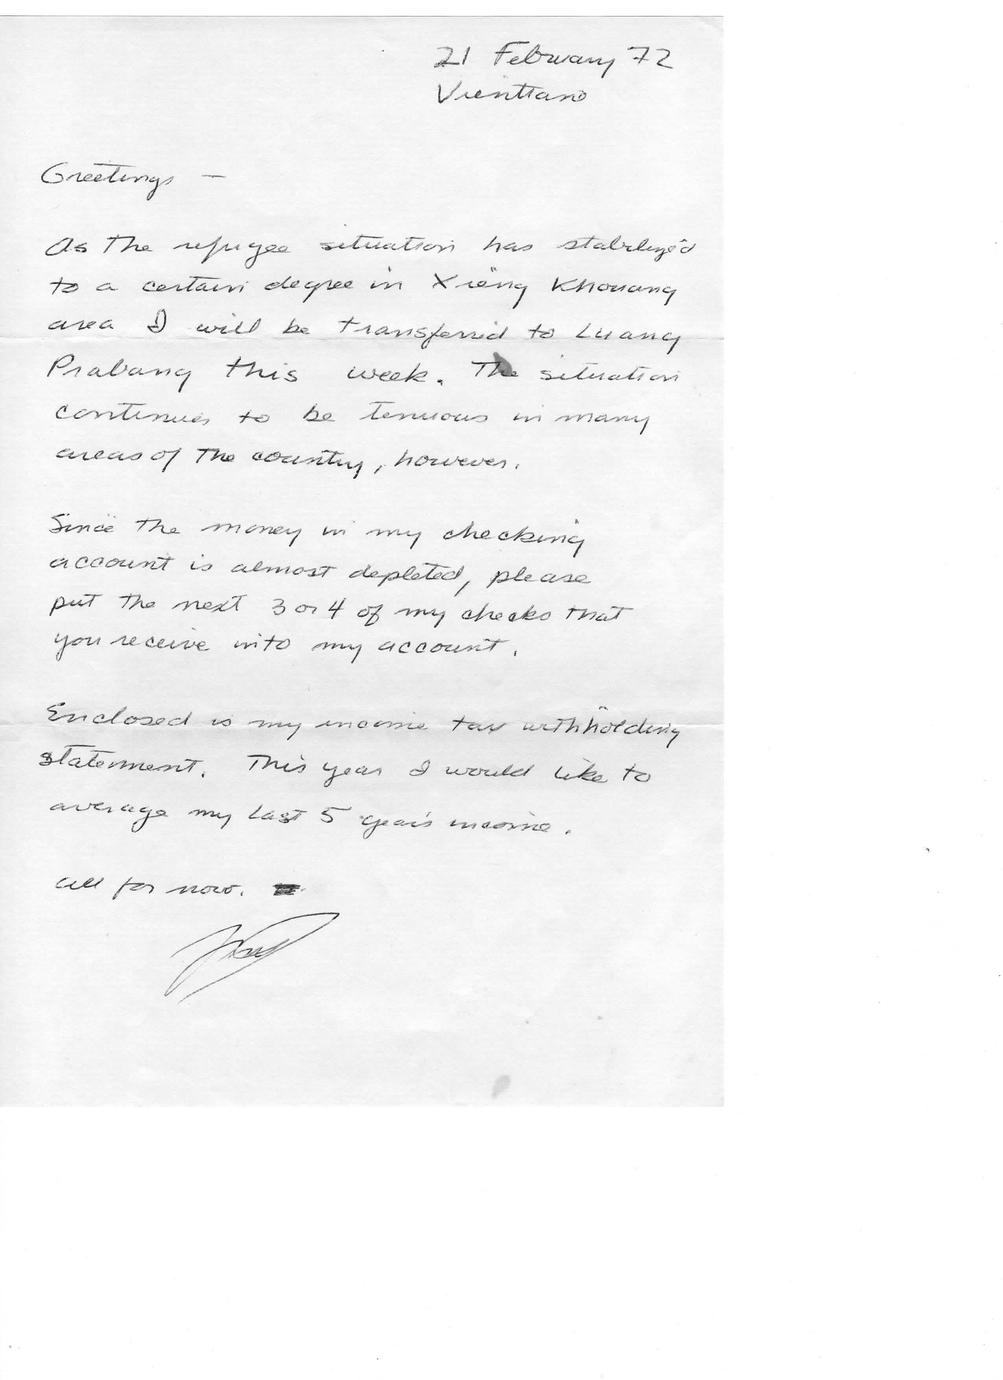 21 February 72
Vientiane
Greetings —
As the refugee situation has stabilized
to a certain degree in Xieng Khouang
area I will be transferred to Luang
Prabang this week. The situation
continues to be tenuous in many
areas of the country, however.
Since the money in my checking
account is almost depleted, please
put the next 3 or 4 of my checks that
you receive into my account.
Enclosed is my income tax withholding
statement. This year I would like to
average my last 5 years income.
All for now.